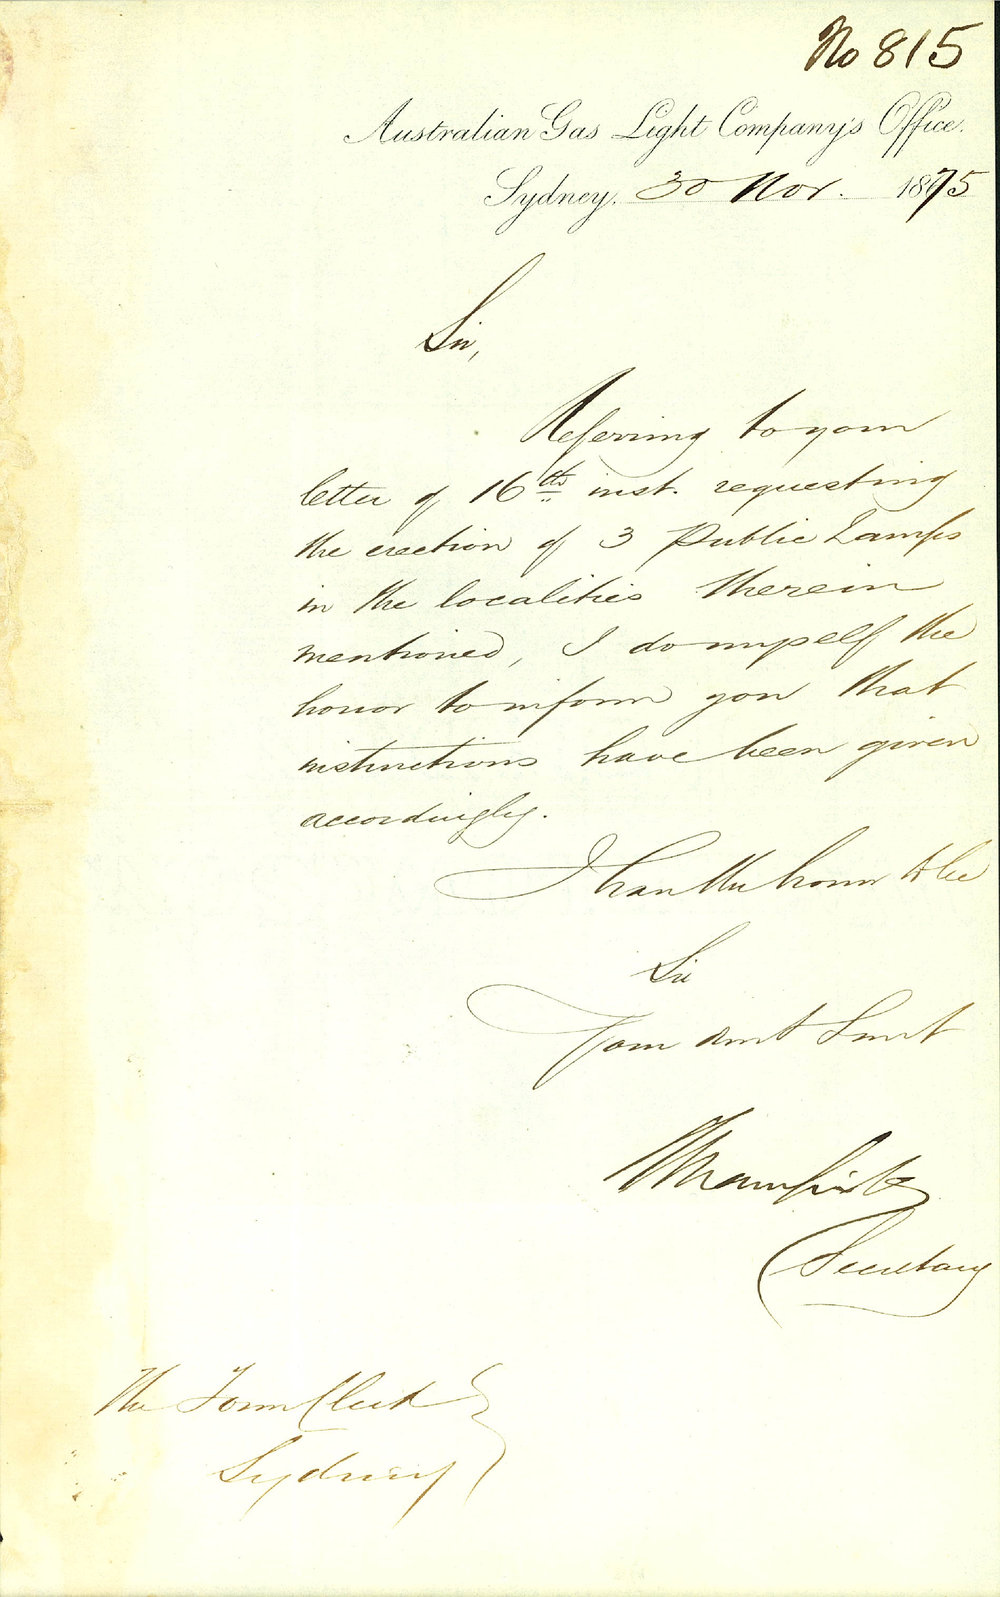 No 815
Australian Gas Light Company's Office.
Sydney. 30 Nov. 1875
Sir,
Referring to your
letter of 16th inst. requesting
the erection of 3 Public Lamps
in the localities therein
mentioned, I do myself the
honor to inform you that
instructions have been given
accordingly.
I have the honor to be
Sir
Your obdt Servt
Secretary
The Town Clerk
Sydney